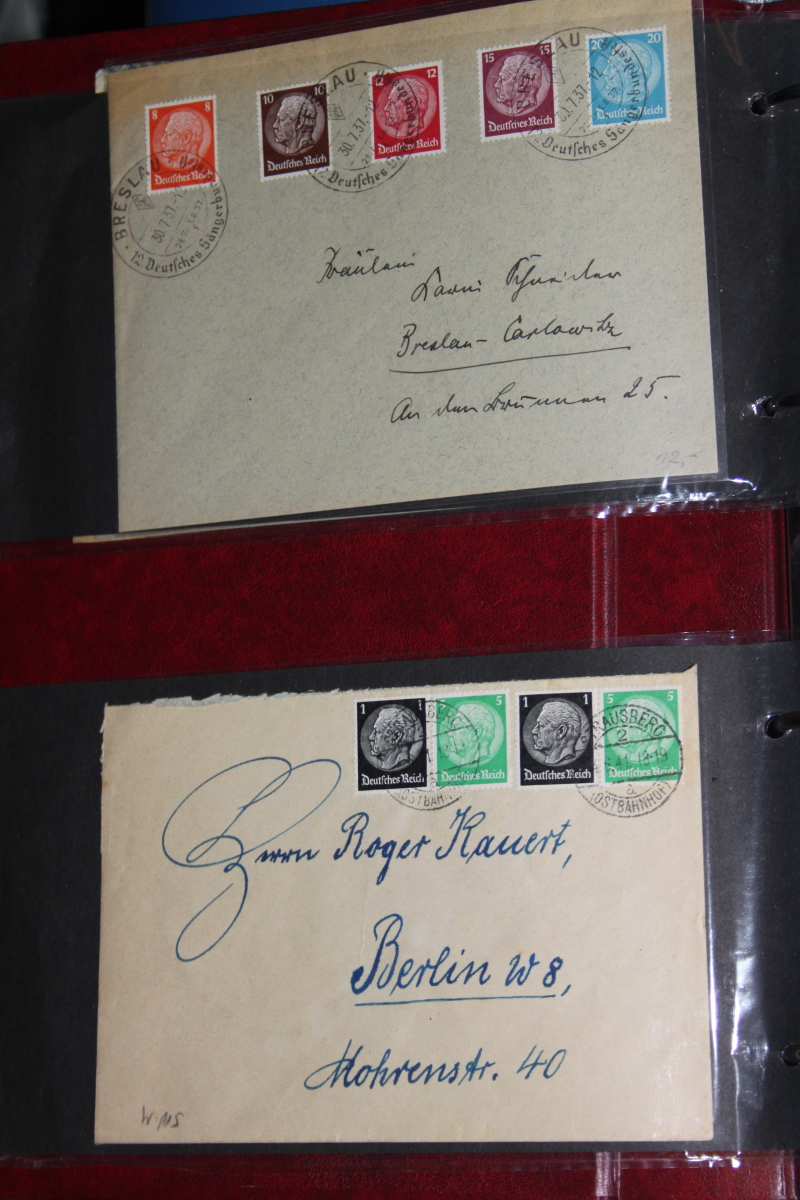 8 8
Deutsches Reich
10 10
Deutsches Reich
12 12
Deutsches Reich
15 15
Deutsches Reich
20 20
Deutsches Reich
BRESLAU
30.7.37.-12
12. Deutsches Sängerbundesfest
BRESLAU
30.7.37.-12
Deutsches Sängerbundesfest
30.7.37.-12
Deutsches Sängerbundesfest
Fräulein
Schneider
Breslau-Carlowitz
An den Brunnen 25.
12.-
1
Deutsches Reich
5
Deutsches Reich
1 1
Deutsches Reich
5 5
Deutsches Reich
(OSTBAHNHOF)
STRAUSBERG
2
41.-18-19
a
(OSTBAHNHOF)
Herrn Roger Kauert,
Berlin W 8,
Mohrenstr. 40